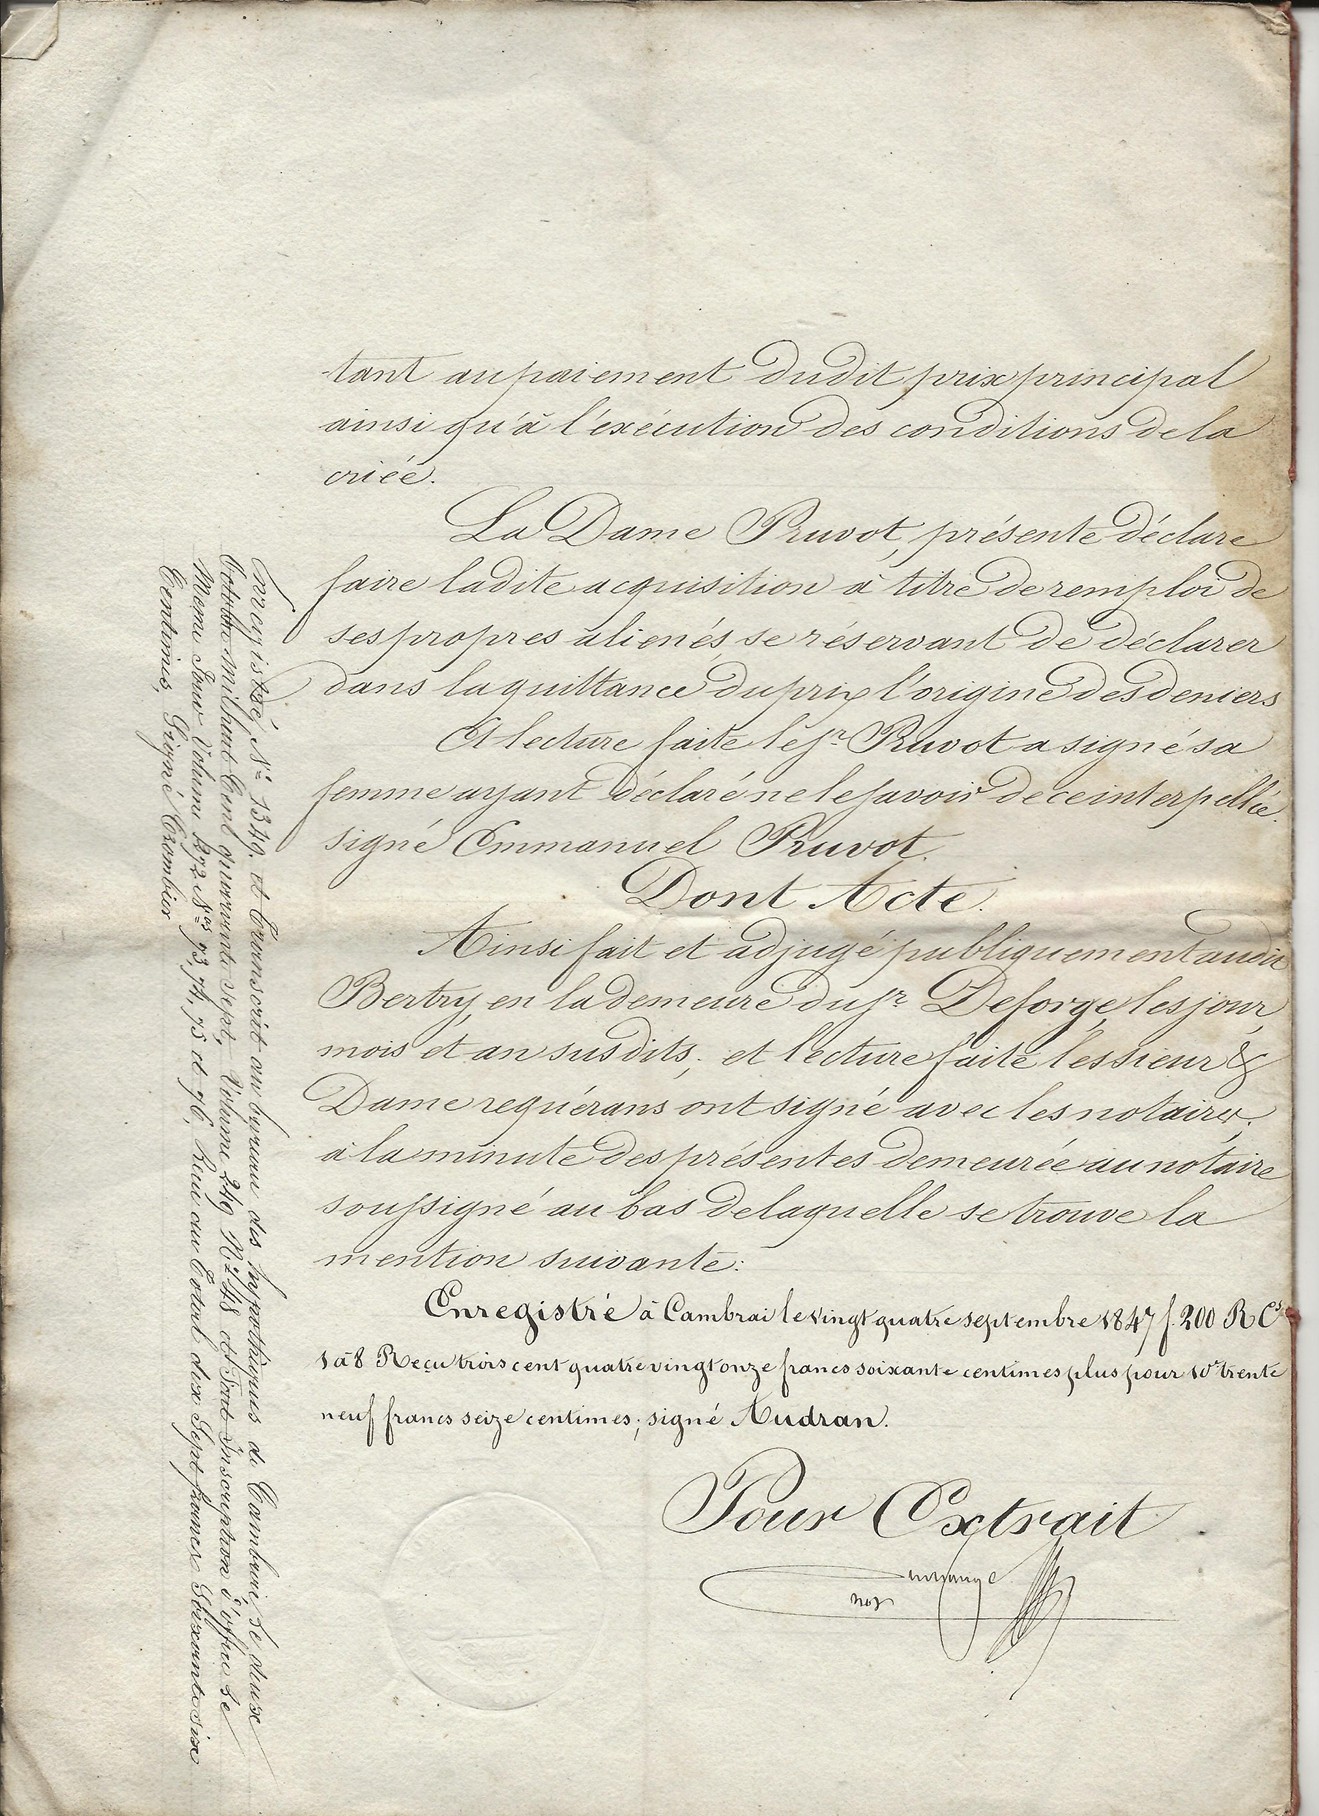 tant au paiement dudit prix principal
ainsi qu'à l'exécution des conditions de la
criée.
La Dame Pruvot, présente déclare
faire ladite acquisition à titre de remploi de
ses propres aliénés, se réservant de déclarer
dans la quittance du prix l'origine des deniers
Et lecture faite le sr Pruvot a signé sa
femme ayant déclaré ne le savoir de ce interpellée.
signé Emmanuel Pruvot.
Dont Acte.
Ainsi fait et adjugé publiquement audit
Bertry, en la demeure du sr Deforge, les jour,
mois et an susdits; et lecture faite les sieur &
Dame requérans ont signé avec les notaires,
à la minute des présentes demeurée au notaire
soussigné au bas de laquelle se trouve la
mention suivante:
Enregistré à Cambrai le vingt quatre septembre 1847 f. 200 R Cs
1 à 8 Reçu trois cent quatre vingt onze francs soixante centimes plus pour 10e trente
neuf francs seize centimes; signé Audran.
Pour Extrait
not
Enregistré No 1349. et Transcrit au bureau des hypothèques de Cambrai, le deux
Octobre mil huit Cent quarante sept, Volume 249 No 48 et Fait Inscription d'office le
Meme Jour Volume 292 Nos 73, 74, 75 et 76, Recu au Total dix Sept francs Soixante six
Centimes, Signé Crombier